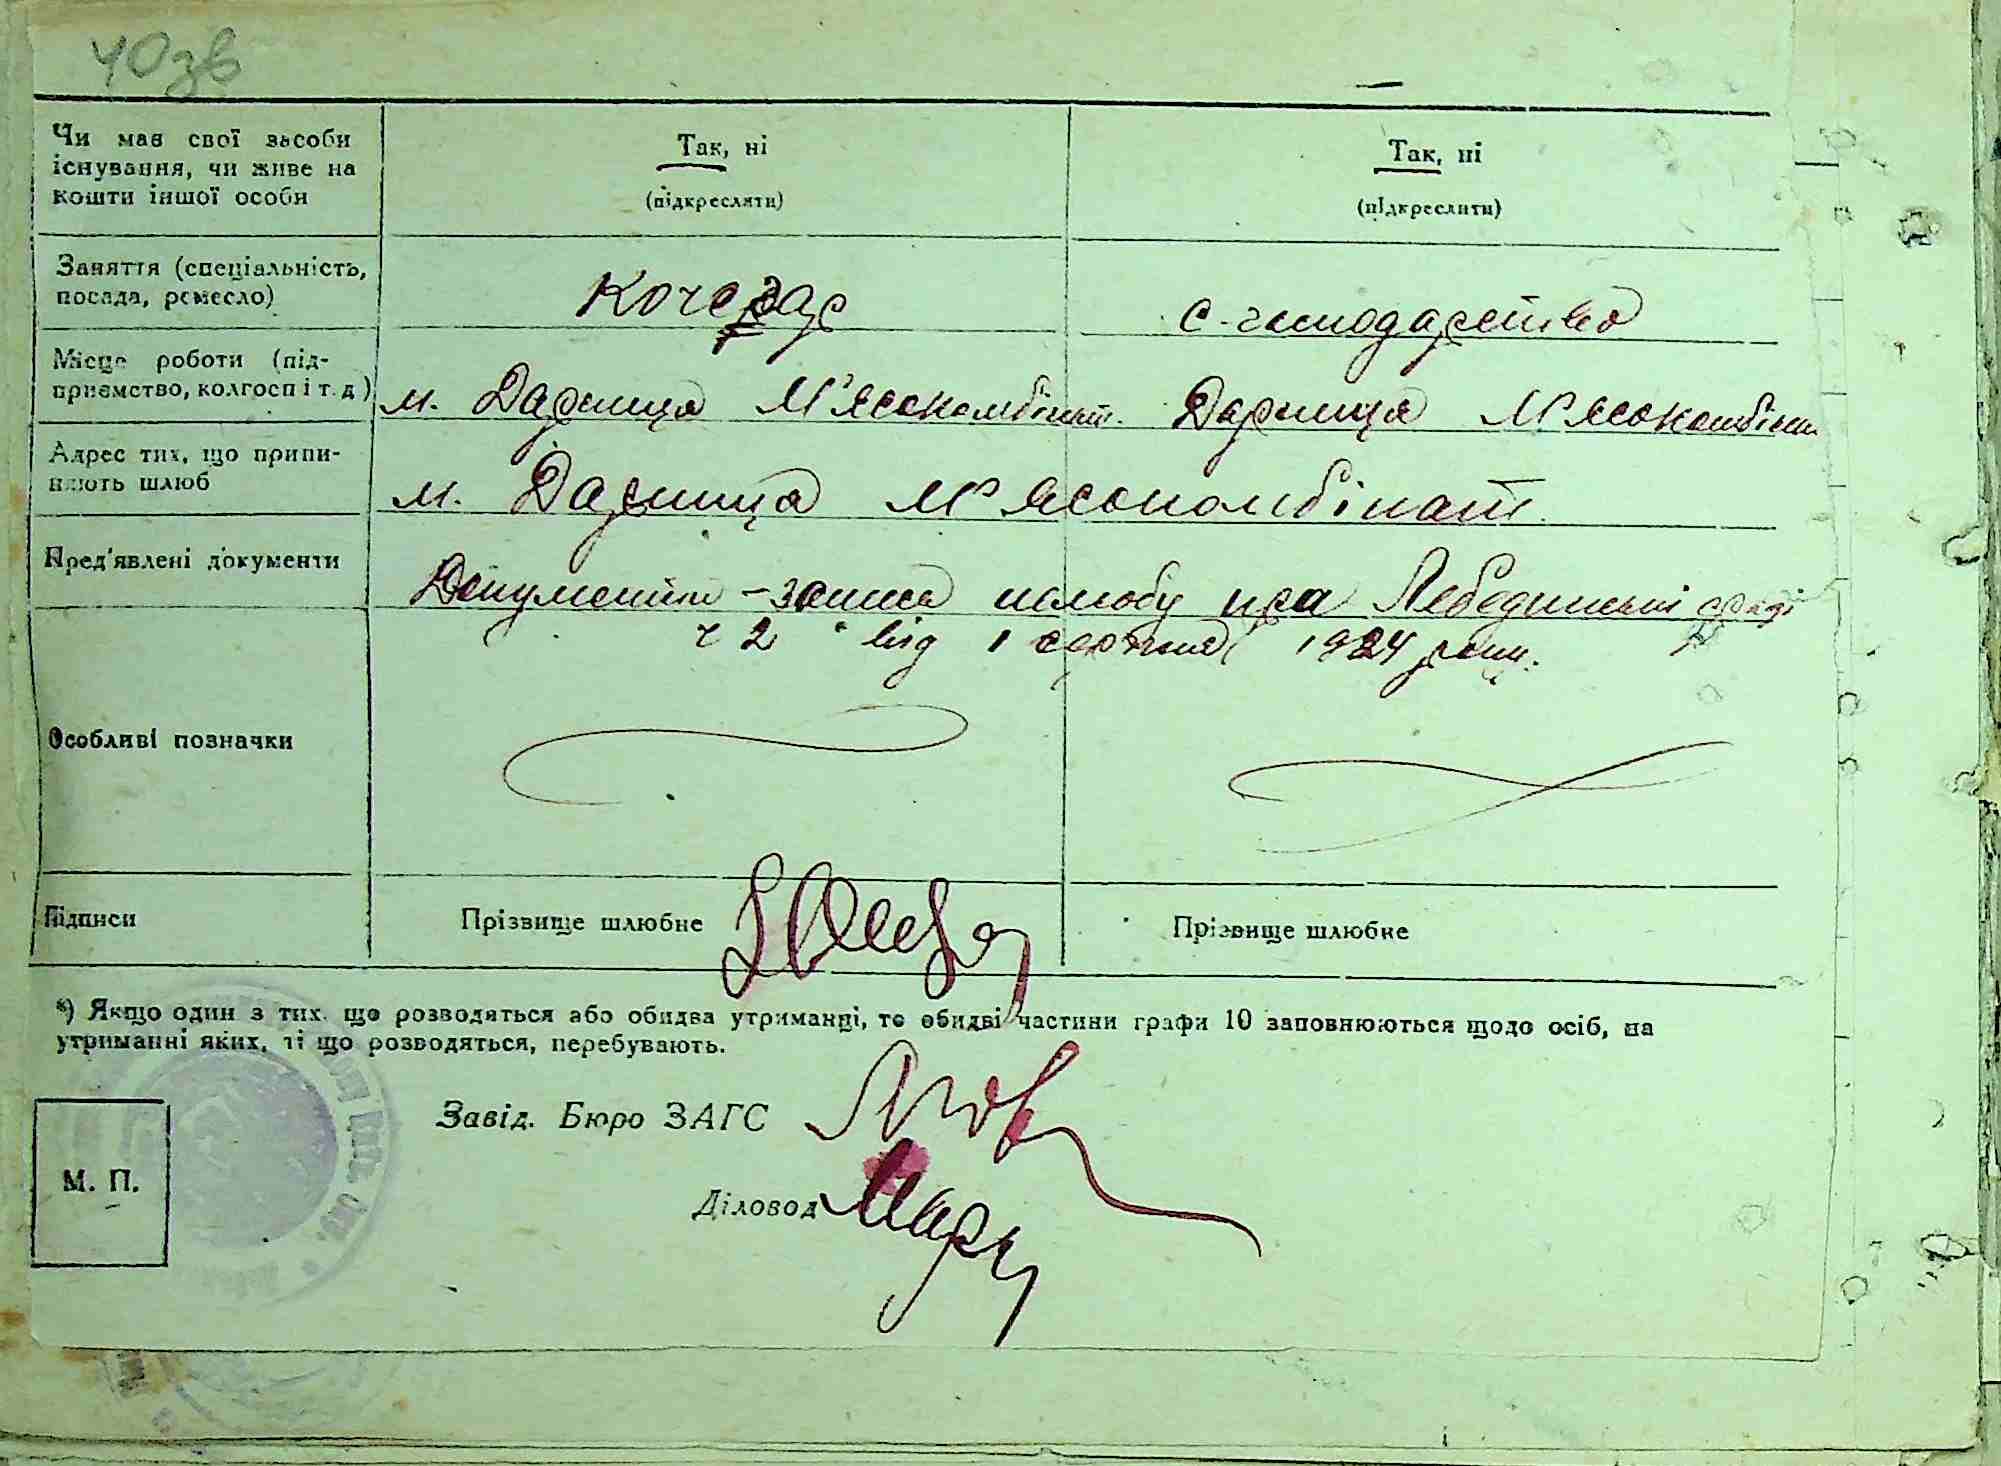 40зв
Чи має свої засоби
існування, чи живе на
кошти іншої особи
Так, ні
(підкреслити)
Так, ні
(підкреслити)
Заняття (спеціальність,
посада, ремесло)
Кочегар
с-господарство
Місце роботи (під-
приємство, колгосп і т. д)
м. Дарниця М'ясокомбінат.
Дарниця М'ясокомбінат
Адрес тих, що припи-
няють шлюб
м. Дарниця М'ясокомбінат
Пред'явлені документи
Документи - запис шлюбу при Лебединській
ч 2 від 1 серпня 1924 року.
Особливі позначки
Підписи
Прізвище шлюбне
Прізвище шлюбне
*) Якщо один з тих, що розводяться або обидва утриманці, то обидві частини графи 10 заповнюються щодо осіб, на
утриманні яких, ті що розводяться, перебувають.
Завід. Бюро ЗАГС
М. П.
Діловод